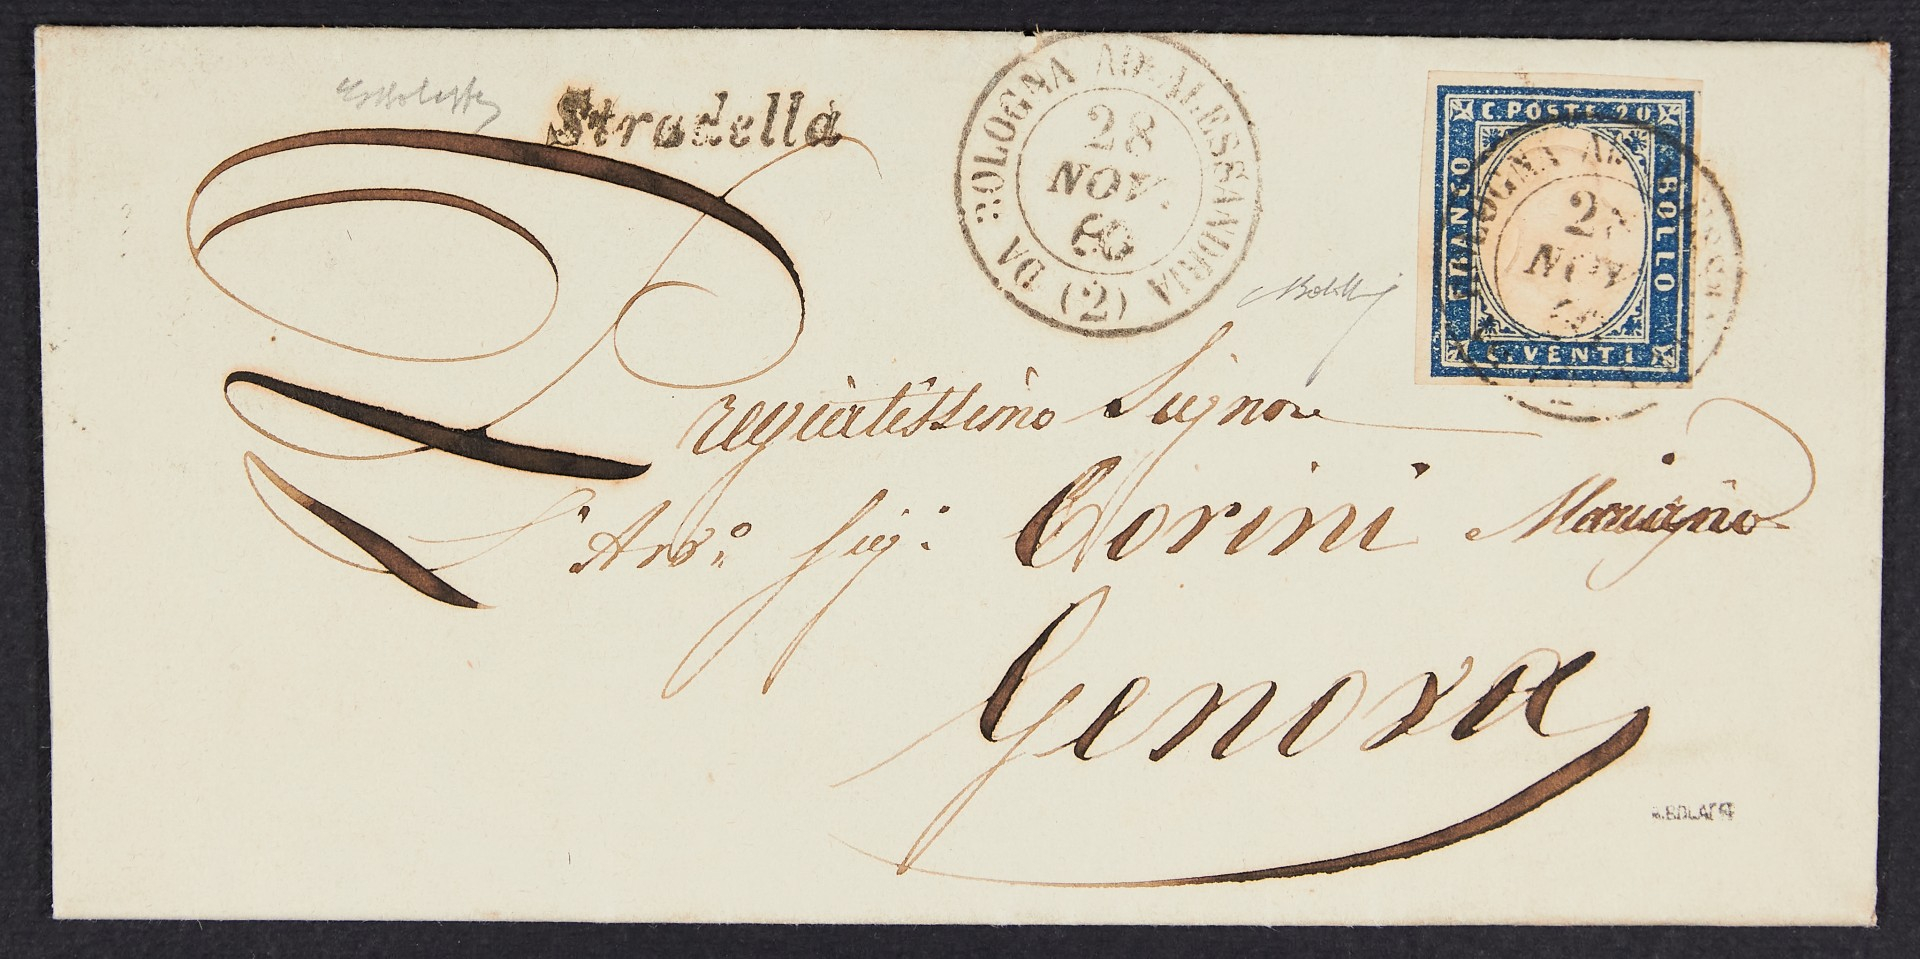 Stradella
DA BOLOGNA AD ALESSANDRIA (2)
28
NOV.
60
C. POSTE 20
FRANCO
BOLLO
C. VENTI
BOLOGNA AD
28
NOV
Pregiatissimo Signore
L'Avv.º Sig.
Corini Mariano
Genova